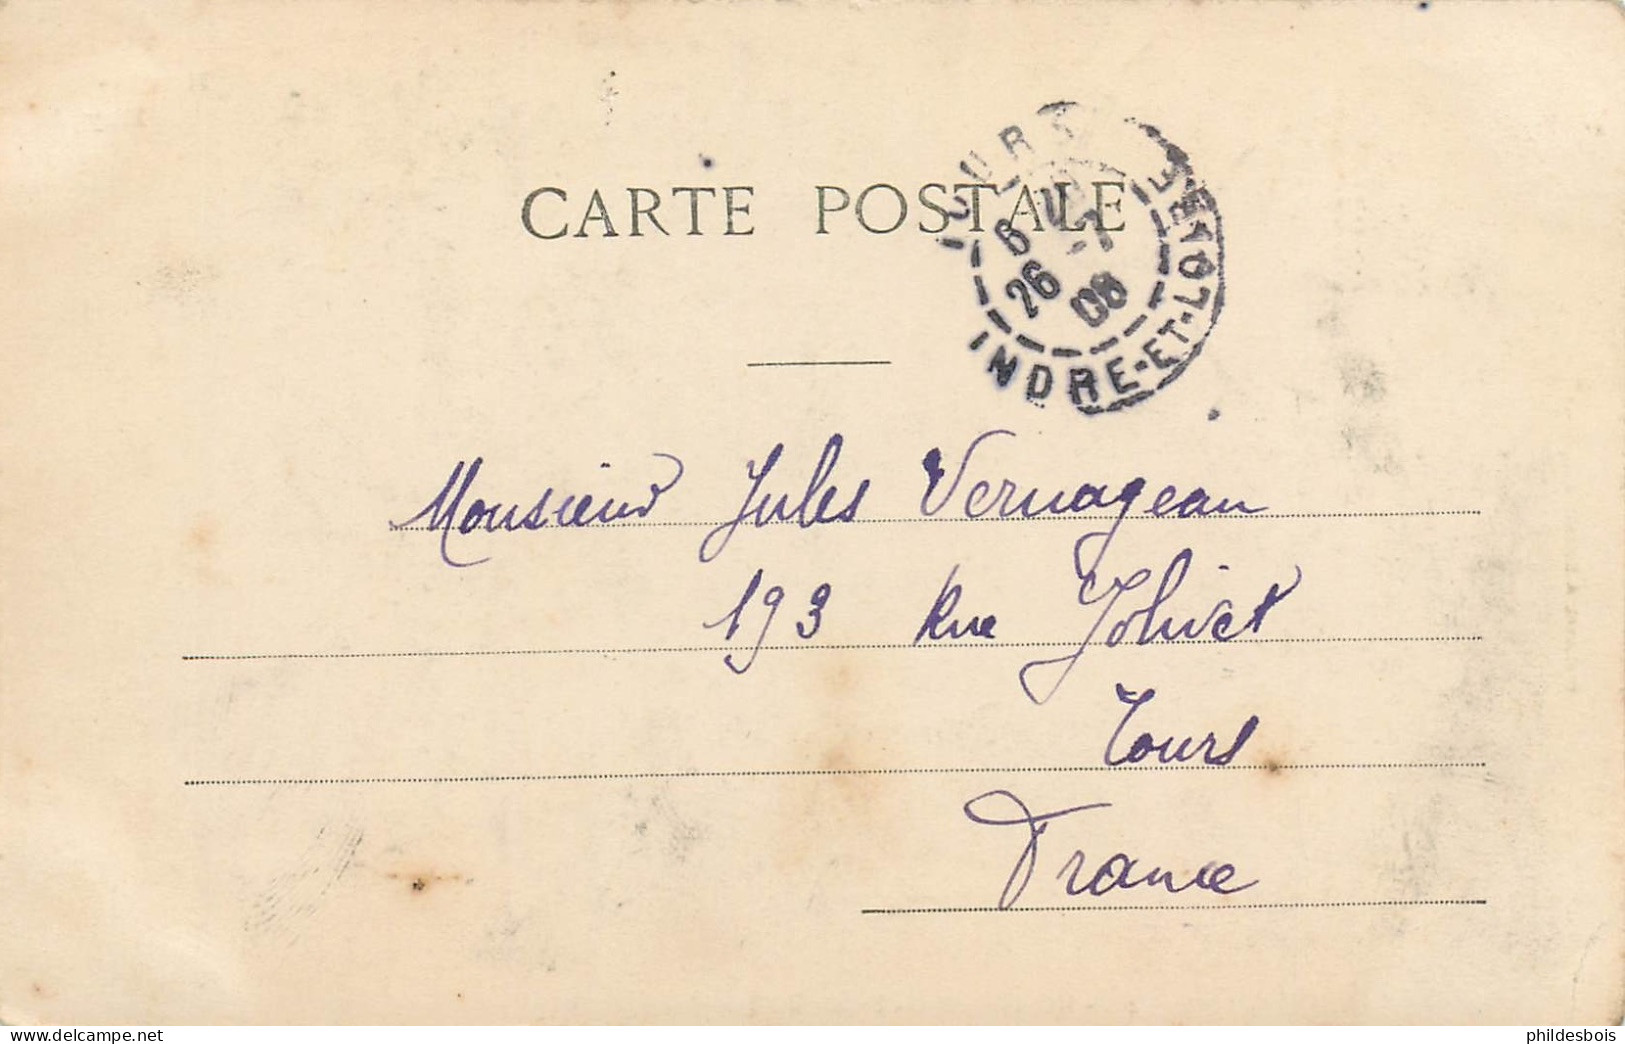 CARTE POSTALE
TOURS
6
26 -7
08
INDRE-ET-LOIRE
Monsieur Jules Vernageau
193 Rue Jolivet
Tours
France
www.delcampe.net
phildesbois